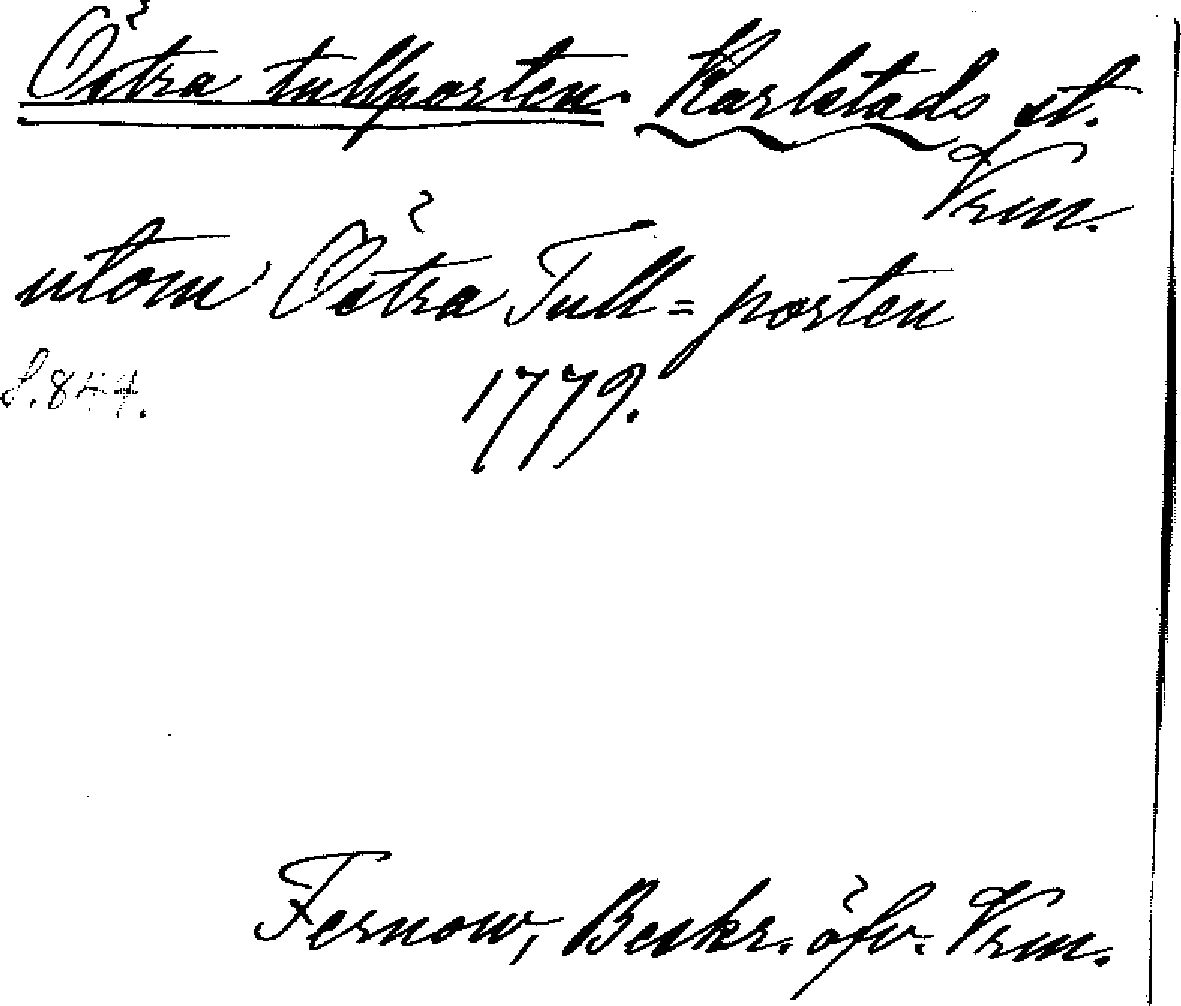 Östra tullporten Karlstads st.
Vrm.
utom Östra Tull=porten
s.844. 1779.
Fernow, Beskr. öfv. Vrm.